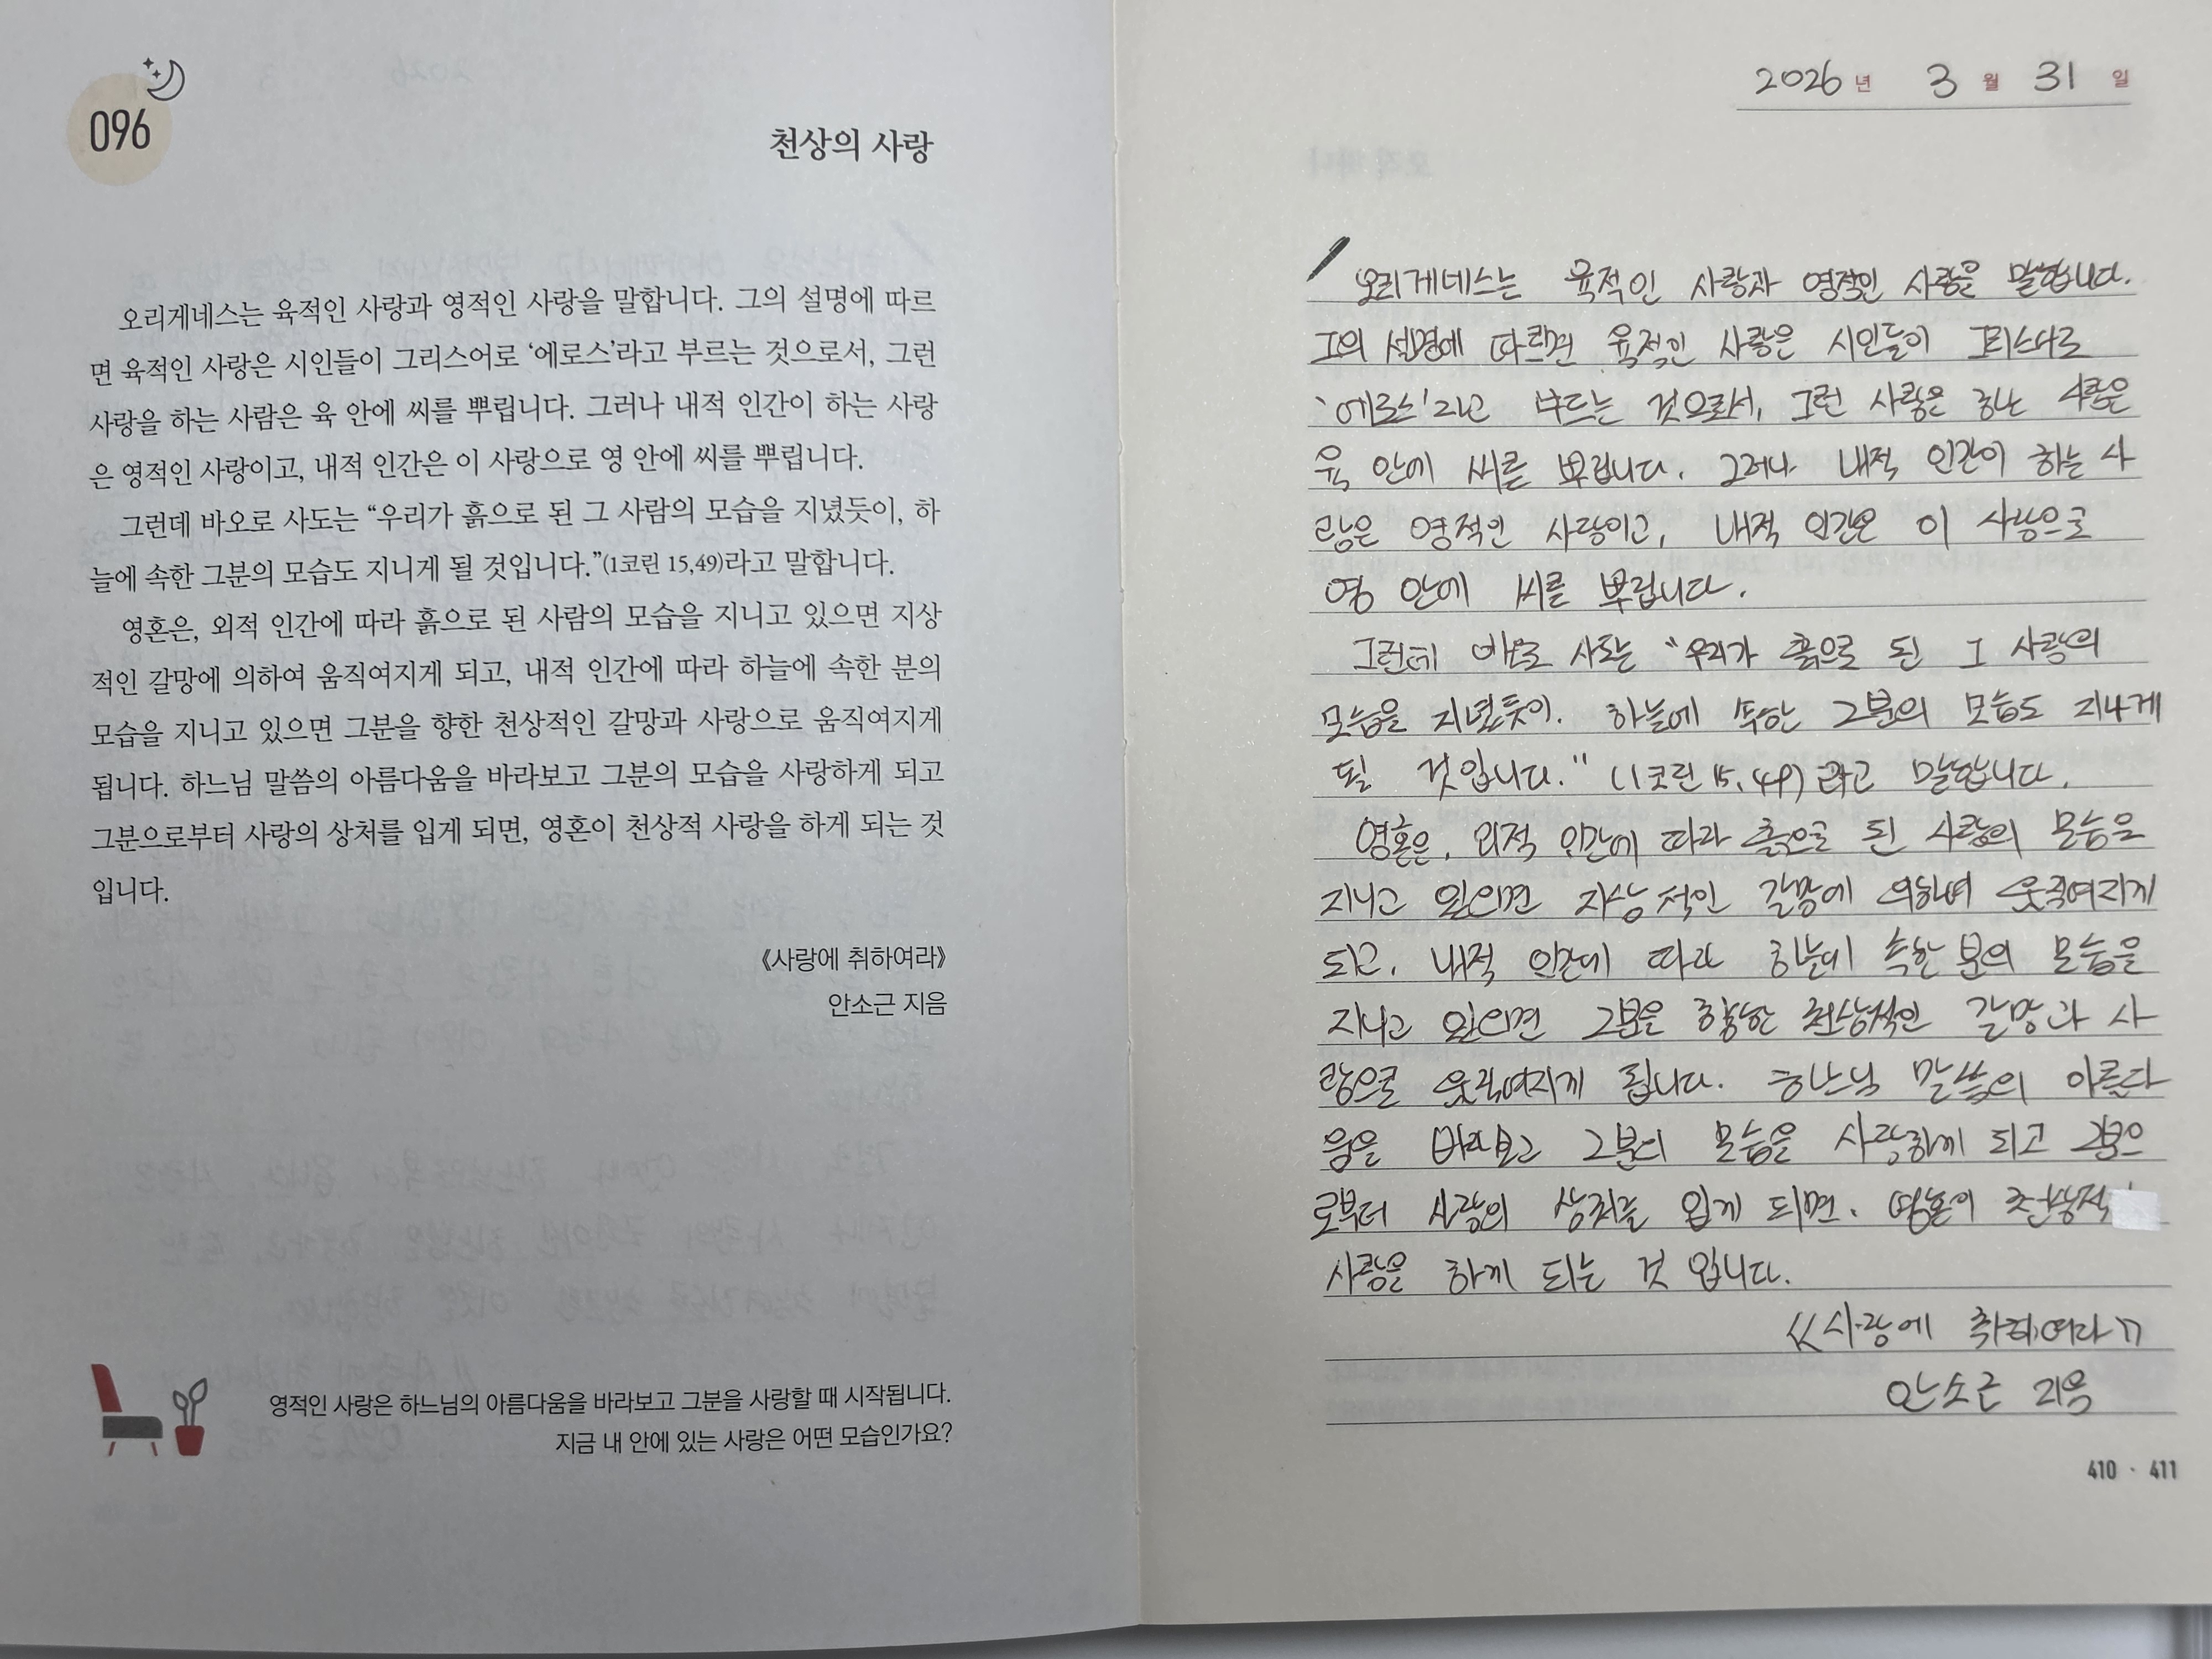 096
천상의 사랑
오리게네스는 육적인 사랑과 영적인 사랑을 말합니다. 그의 설명에 따르
면 육적인 사랑은 시인들이 그리스어로 ‘에로스’라고 부르는 것으로서, 그런
사랑을 하는 사람은 육 안에 씨를 뿌립니다. 그러나 내적 인간이 하는 사랑
은 영적인 사랑이고, 내적 인간은 이 사랑으로 영 안에 씨를 뿌립니다.
그런데 바오로 사도는 “우리가 흙으로 된 그 사람의 모습을 지녔듯이, 하
늘에 속한 그분의 모습도 지니게 될 것입니다.”(1코린 15,49)라고 말합니다.
영혼은, 외적 인간에 따라 흙으로 된 사람의 모습을 지니고 있으면 지상
적인 갈망에 의하여 움직여지게 되고, 내적 인간에 따라 하늘에 속한 분의
모습을 지니고 있으면 그분을 향한 천상적인 갈망과 사랑으로 움직여지게
됩니다. 하느님 말씀의 아름다움을 바라보고 그분의 모습을 사랑하게 되고
그분으로부터 사랑의 상처를 입게 되면, 영혼이 천상적 사랑을 하게 되는 것
입니다.
《사랑에 취하여라》
안소근 지음
영적인 사랑은 하느님의 아름다움을 바라보고 그분을 사랑할 때 시작됩니다.
지금 내 안에 있는 사랑은 어떤 모습인가요?
2026 년 3 월 31 일
오리게네스는 육적인 사랑과 영적인 사랑을 말합니다.
그의 설명에 따르면 육적인 사랑은 시인들이 그리스어로
‘에로스’라고 부르는 것으로서, 그런 사랑은 하는 사람은
육 안에 씨를 뿌립니다. 그러나 내적 인간이 하는 사
랑은 영적인 사랑이고, 내적 인간은 이 사랑으로
영 안에 씨를 뿌립니다.
그런데 바오로 사도는 “우리가 흙으로 된 그 사람의
모습을 지녔듯이. 하늘에 속한 그분의 모습도 지니게
될 것입니다.” (1코린 15,49) 라고 말합니다.
영혼은, 외적 인간에 따라 흙으로 된 사람의 모습을
지니고 있으면 지상적인 갈망에 의하여 움직여지게
되고, 내적 인간에 따라 하늘에 속한 분의 모습을
지니고 있으면 그분을 향한 천상적인 갈망과 사
랑으로 움직여지게 됩니다. 하느님 말씀의 아름다
움을 바라보고 그분의 모습을 사랑하게 되고 그분으
로부터 사랑의 상처를 입게 되면. 영혼이 천상적
사랑을 하게 되는 것 입니다.
《사랑에 취하여라》
안소근 지음
410 · 411